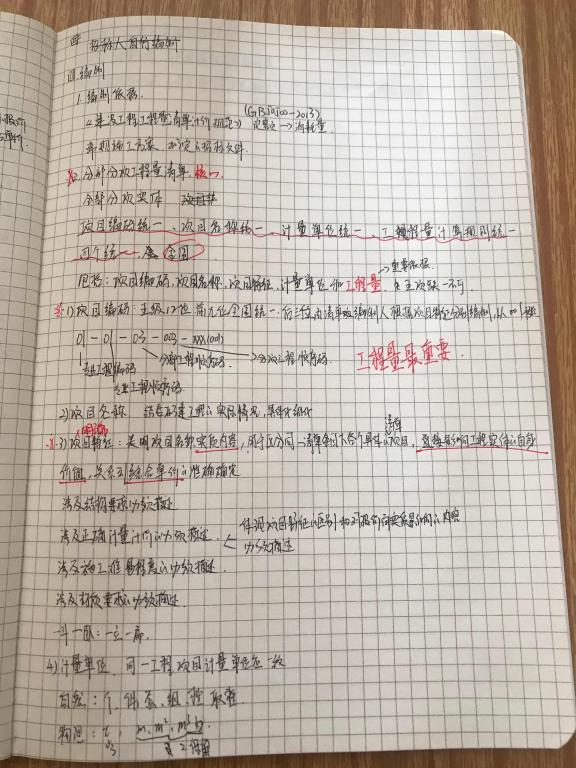 招标人自行编制
(三)编制
1.编制依据.
《建设工程工程量清单计价规范》(GB50500-2013) 定额 → 消耗量
常规施工方案 拟定的招标文件
2.分部分项工程量清单 核心
全部分项实体 项目
项目编码统一、项目名称统一、计量单位统一、工程量计算规则统一
四个统一 全国
包括:项目编码,项目名称,项目特征,计量单位和工程量 重要依据 五项缺一不可
1)项目编码:五级12位 前九位全国统一.后三位由清单编制人根据项目特征分别编制,从001起
01-01-03-003-xxx(001)
专业工程编码 分部工程顺序码 分项工程顺序码.
专业工程顺序码
工程量最重要.
2)项目名称 结合拟建工程的实际情况,具体化细化
3)项目特征:表明项目名称实质内容,用于区分同一清单条目下各个具体的项目,直接影响工程实体的自身
价值,关系到综合单价的准确确定
涉及结构要求的必须描述
涉及正确计量计价的必须描述. 体现项目特征的区别和对报价有实质影响的内容
必须描述
涉及施工难易程度的必须描述.
涉及材质要求的必须描述.
4)计量单位 同一工程项目计量单位应一致
自然:个、件、套、组、 取整
物理:t, m, m², m³
3 2